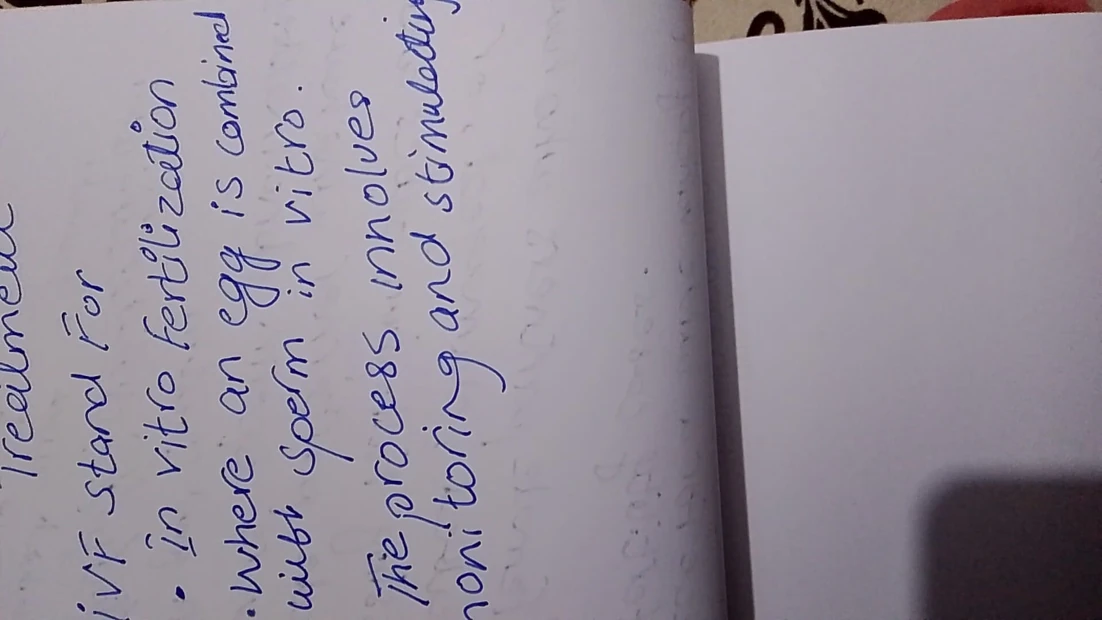 Treatment
IVF stand For
• In vitro fertilization
• Where an egg is combined
with sperm in vitro.
The process innolves
monitoring and stimulating